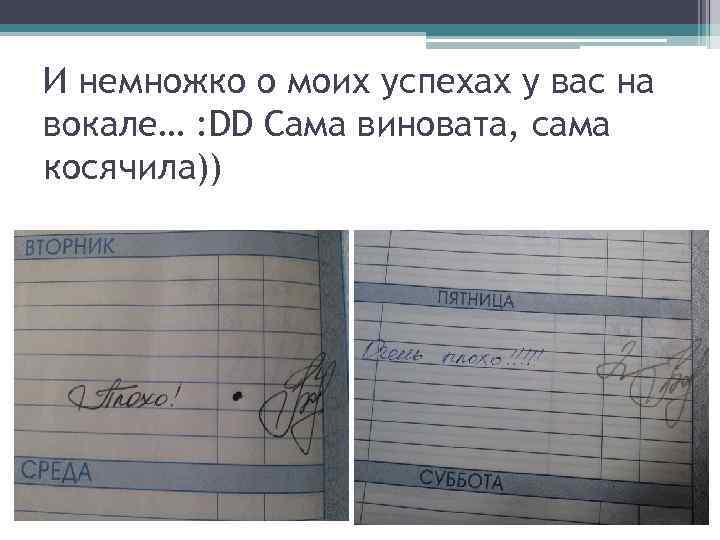 И немножко о моих успехах у вас на
вокале… :DD Сама виновата, сама
косячила))
ВТОРНИК
Плохо!
СРЕДА
ПЯТНИЦА
Очень плохо!!!!!
СУББОТА